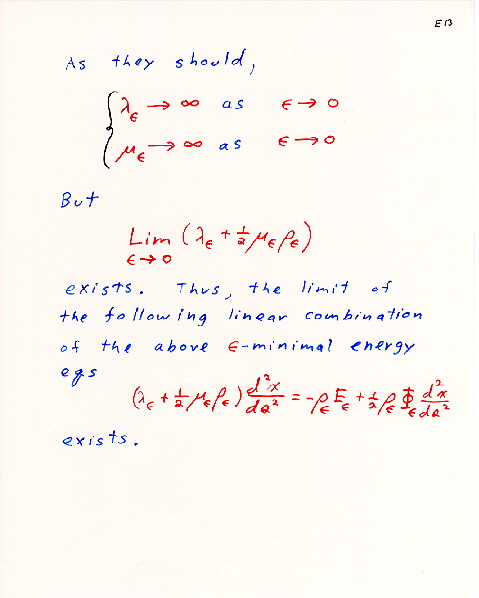 E13
As they should,
λ_ϵ → ∞ as ϵ → 0
μ_ϵ → ∞ as ϵ → 0
But
Lim (λ_ϵ + ½ μ_ϵ ρ_ϵ)
ϵ → 0
exists. Thus, the limit of
the following linear combination
of the above ϵ-minimal energy
eqs
(λ_ϵ + ½ μ_ϵ ρ_ϵ) d²x/da² = -ρ_ϵ E_ϵ + ½ ρ_ϵ Φ_ϵ d²x/da²
exists.